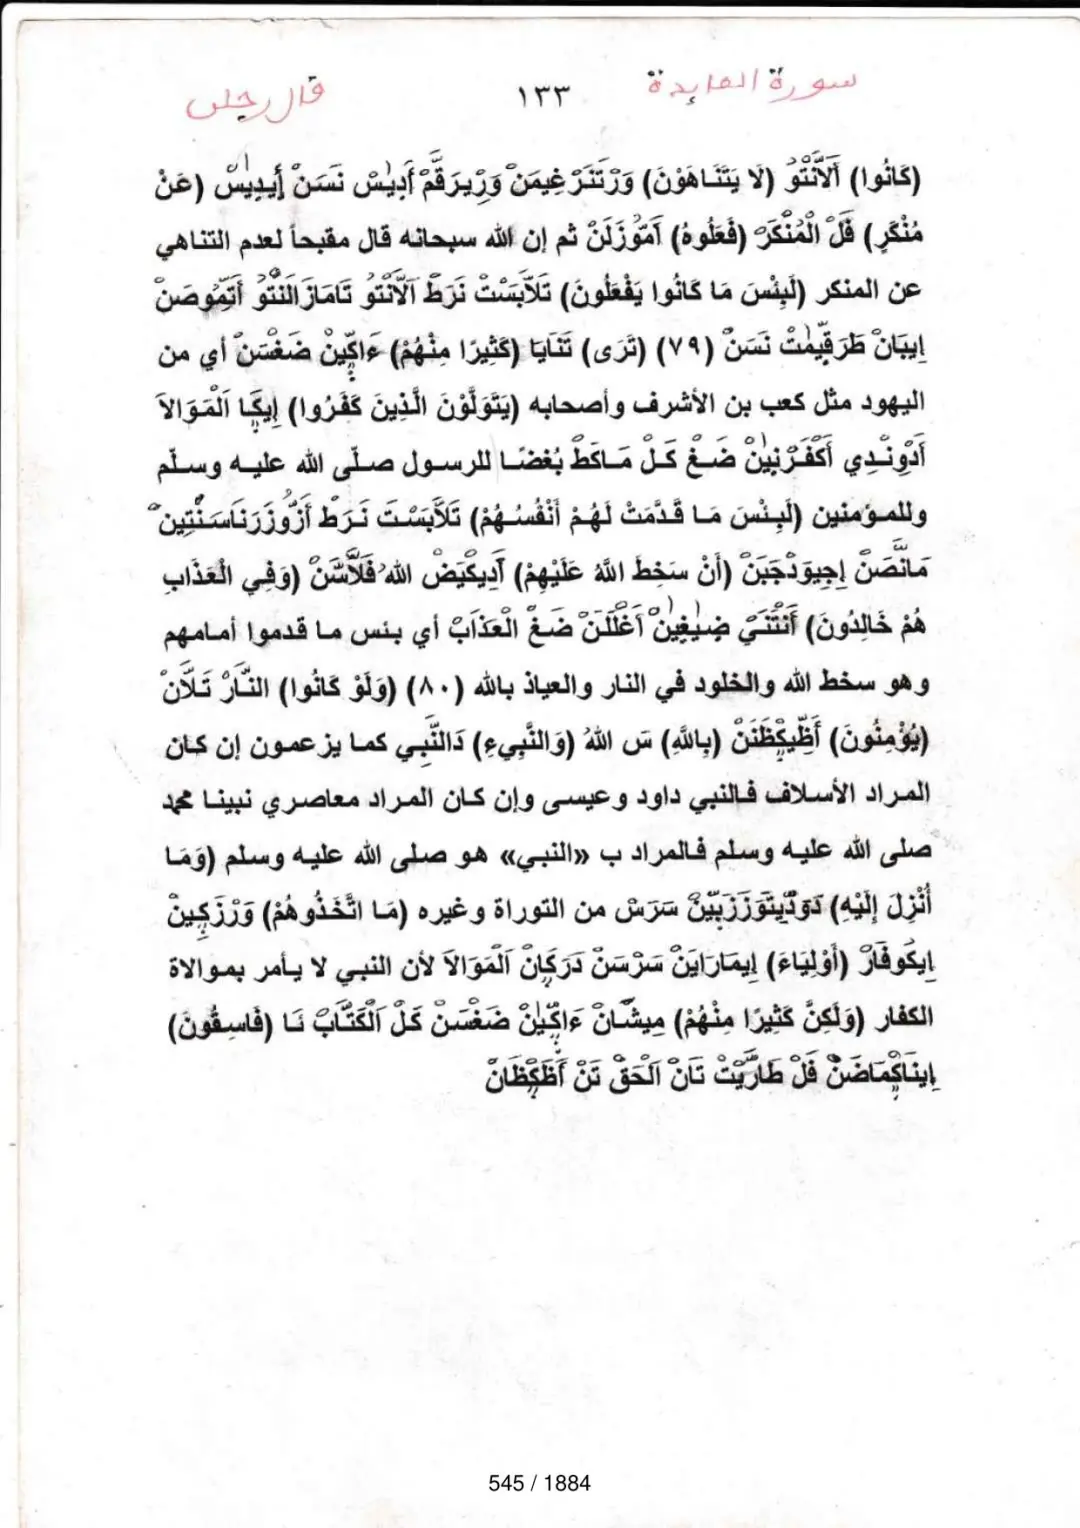 سورة المايدة ١٣٣ قال رجلن
(كَانُوا) آلَانْتُو (لَا يَتَنَاهَوْنَ) وَرْتَنَرْغِيمَنْ وَرْيرَقَّمْ أَدِيْسْ نَسَنْ إِيدِيْسْ (عَنْ
مُنْكَرٍ) فَلْ الْمُنْكَرْ (فَعَلُوهُ) آمَوُزَلَنْ ثم إن الله سبحانه قال مقبحاً لعدم التناهي
عن المنكر (لَبِئْسَ مَا كَانُوا يَفْعَلُونَ) تَلَابَسْتْ نَرَطْ آلَانْتُو تَامَازَالَنْتُو أَتِمُّوصَنْ
إِيبَانْ طَرَقِيمْتْ نَسَنْ (٧٩) (تَرَى) تَنَايَا (كَثِيرًا مِنْهُمْ) ءَاكِّينْ ضَغْسَنْ أي من
اليهود مثل كعب بن الأشرف وأصحابه (يَتَوَلَّوْنَ الَّذِينَ كَفَرُوا) إِيكَّا الْمَوَالَا
أَدْوِنْدِي أَكْفَرْنِيْنْ ضَغْ كَلْ مَاكَطْ بُغضًا للرسول صلّى الله عليه وسلّم
وللمؤمنين (لَبِئْسَ مَا قَدَّمَتْ لَهُمْ أَنْفُسُهُمْ) تَلَابَسْتَ نَرَطْ أَزُّوزَرْنَاسَنْتِينْ
مَانَّصَنْ إِجِيوَدْجَبَنْ (أَنْ سَخِطَ اللَّهُ عَلَيْهِمْ) آدِيكْيَضْ الله فَلَّاسَنْ (وَفِي الْعَذَابِ
هُمْ خَالِدُونَ) أَنْتَنَيْ ضِيْغِينْ آغْلَلَنْ ضَغْ الْعَذَابْ أي بئس ما قدموا أمامهم
وهو سخط الله والخلود في النار والعياذ بالله (٨٠) (وَلَوْ كَانُوا) النَّارْ تَلَّانْ
(يُؤْمِنُونَ) أَظِّيكِظَنَنْ (بِاللَّهِ) سَ اللهْ (وَالنَّبِيءِ) دَالنَّبِي كما يزعمون إن كان
المراد الأسلاف فالنبي داود وعيسى وإن كان المراد معاصري نبينا محمد
صلى الله عليه وسلم فالمراد ب «النبي» هو صلى الله عليه وسلم (وَمَا
أُنْزِلَ إِلَيْهِ) دَوَدِّيتَوَزَزَبِّينْ سَرَسْ من التوراة وغيره (مَا اتَّخَذُوهُمْ) وَرْزَكِينْ
إِيكُوفَارْ (أَوْلِيَاءَ) إِيمَارَايَنْ سَرْسَنْ دَرَكَانْ الْمَوَالَا لأن النبي لا يأمر بموالاة
الكفار (وَلَكِنَّ كَثِيرًا مِنْهُمْ) مِيشَانْ ءَاكِّيْنْ ضَغْسَنْ كَلْ اَلْكَتَّابْ نَا (فَاسِقُونَ)
إِينَاكْمَاضَنْ فَلْ طَارَّيْتْ تَانْ اَلْحَقْ تَنْ أَظَّكِظَانْ
545 / 1884